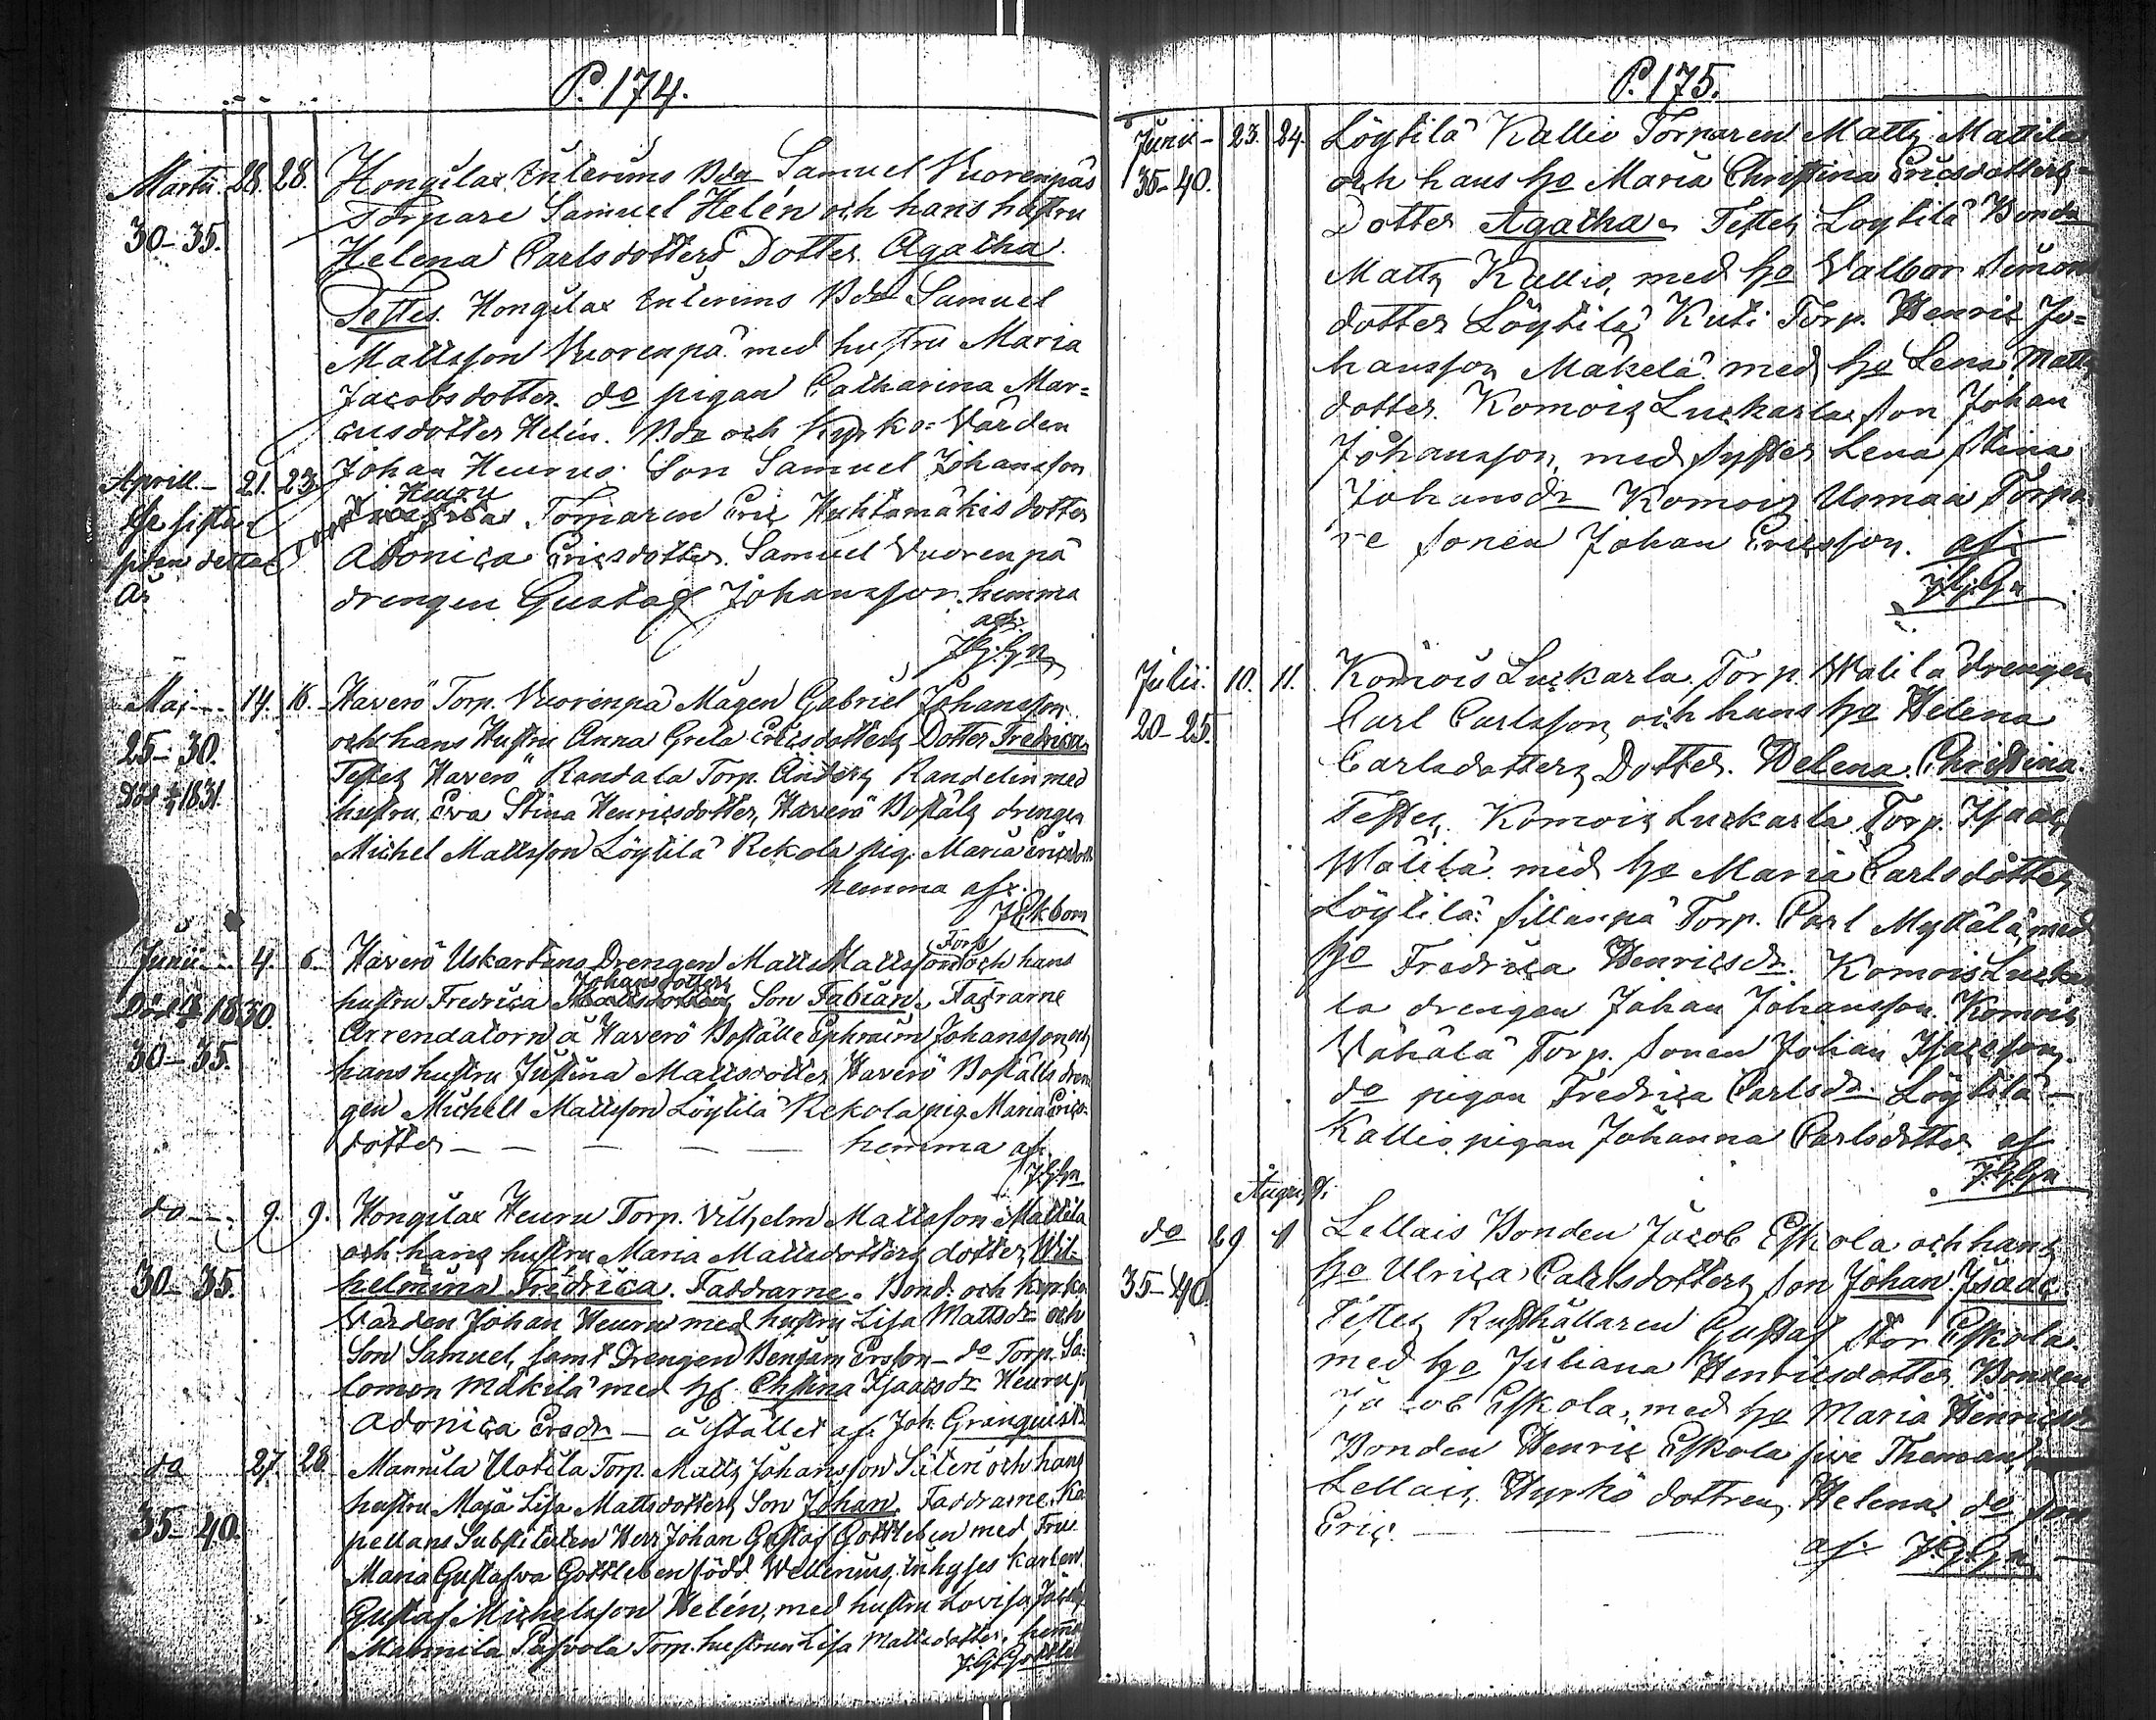 P. 174.
Martii. 28. 28. Hongilax Interims Bdn Samuel Vuorenpäs
30-35. Torpare Samuel Helén och hans hustru
Helena Carlsdotters Dotter. Agatha.
Testes. Hongilax Interims Bdn Samuel
Mattsson Vuorenpä med hustru Maria
Jacobsdotter. do pigan Catharina Mar=
cusdotter Helén. Bdn och Kyrko=Värden
Johan Heurus Son Samuel Johansson
Aprill. 21. 23. Heuru Torparen Eric Huhtamäkis dotter
Adonica Ericsdotter. Samuel Vuorenpä
detta År drengen Gustaf Johansson. hemma
af:
J.G.Gn
Maj 14. 16. Haverö Torp. Vuorenpä Mågen Gabriel Johansson
25-30. och hans Hustru Anna Greta Ericsdotters Dotter Fredrica
Testes Haverö Randala Torp. Anders Randelin med
Död 1831 hustru Eva Stina Henricsdotter, Haverö Boställs drengen
Michel Mattsson Löytilä Rekola pig. Maria Ericsdott
hemma af:
J Ekbom
Junii 4. 6. Haverö Uskartins Drengen Matts Mattsson Torp och hans
Död 1830. hustru Fredrica Johansdotters Son Fabian. Faddrarne
Arrendatorn å Haverö Boställe Ephraim Johansson och
30-35. hans hustru Justina Mattsdotter Haverö Boställs dren
gen Michell Mattsson Löytilä Rekola pig. Maria Erics-
dotter — — — — hemma af.
J.G.Gn
do 9. 9. Hongilax Heuru Torp. Vilhelm Mattsson Mattila
och hans hustru Maria Mattsdotters dotter Wil-
30-35. helmina Fredrica. Faddrarne. Bond. och Kyrko
Värden Johan Heuru med hustru Lisa Mattsdr och
Son Samuel, samt Drengen Benjam Ersson - do Torp. Sa-
lomon Mäkilä med Chstina Isaacsdr Heuru p
Adonica Ersdr — å stället af. Joh. Granquist.
do 27. 28. Mannila Uotila Torp. Matts Johansson Säteri och hans
hustru Maja Lisa Mattsdotters Son Johan. Faddrarne. Ka
35-40. pellans Substituten Herr Johan Gustaf Gottleben med Fru
Maria Gustafva Gottleben född Wellenius, Inhyses karlen
Gustaf Michelsson Helén, med hustru Lovisa
Mannila Pasvola Torp. hustrun Lisa Mattsdotter. hemma
J.G.Gottleben
P. 175.
Junii- 23. 24. Löytilä Kallio Torparen Matts Mattila
35-40. och hans ho Maria Christina Ericsdotters
Dotter Agatha. Testes Löytilä Bonden
Matts Kallio, med ho Valbor Simons
dotter Löytilä Kuti Torp. Henric Jo=
hansson Mäkelä med ho Lena Matts
dotter. Komois Luckarla Son Johan
Johansson, med syster Lena Stina
Johansdr Komois Uomaa Torpa
re sonen Johan Ericsson. af:
J.G.Gn
Julii. 10. 11. Komois Luckarla Torp. Walila drengen
20-25. Carl Carlsson, och hans ho Helena
Carlsdotters Dotter. Helena Christina.
Testes. Komois Luckarla Torp. Isaac
Walila med ho Maria Carlsdotter,
Löytilä: Sillanpä Torp. Carl Myttälä, med
ho Fredrica Henricsdr. Komois Luckar
la drengen Johan Johansson. Komois
Vähälä Torp. sonen Johan Isacsson,
do pigan Fredrica Carlsdr. Löytilä-
Kallio pigan Johanna Carlsdotter af
J.G.Gn
August.
do 29 1 Lellais Bonden Jacob Eskola och hans
35-40. ho Ulrica Carlsdotters son Johan Isaac.
Testes Rusthållaren Gustaf Stor Eskola
med ho Juliana Henricsdotter Bonden
Jacob Eskola, med ho Maria Henricsdr
Bonden Henric Eskola sive Theman,
Lellais Hyrkö dottren, Helena do son
Eric.
af. J.G.Gn